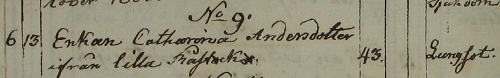 No 9.
6 13. Enkan Catharina Andersdotter
ifrån Lilla 43. Lungsot.